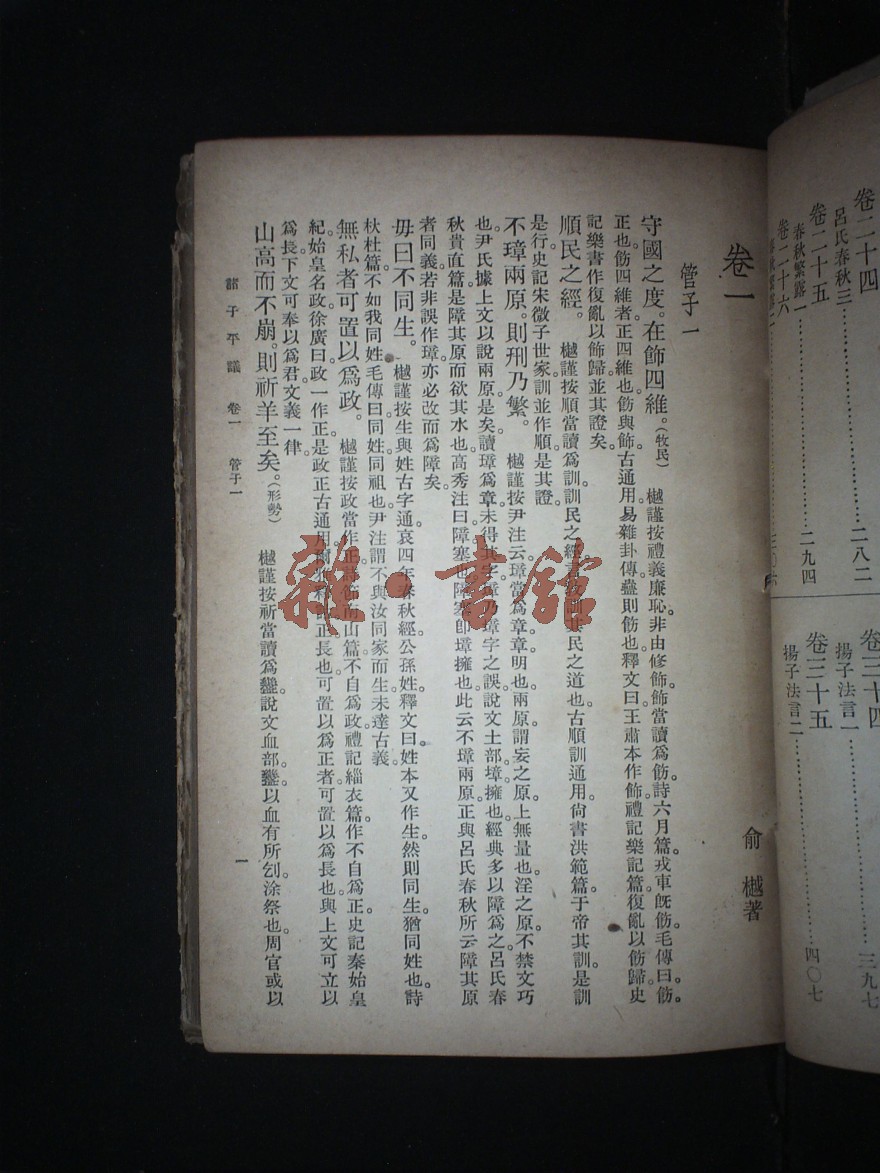 卷二十四
呂氏春秋三……二八二
卷二十五
春秋繁露一……二九四
卷二十六
卷三十四
揚子法言一……三九七
卷三十五
揚子法言二……四〇七
卷一
俞樾著
管子一
守國之度。在飾四維。(牧民) 樾謹按禮義廉恥。非由修飾。飾當讀爲飭。詩六月篇。戎車旣飭。毛傳曰。飭。
正也。飭四維者。正四維也。飭與飾。古通用。易雜卦傳。蠱則飭也。釋文曰。王肅本作飾。禮記樂記篇。復亂以飭歸。史
記樂書作復亂以飾歸。並其證矣。
順民之經。 樾謹按順當讀爲訓。訓民之經。言敎訓其民之道也。古順訓通用。尙書洪範篇。于帝其訓。是訓
是行。史記宋微子世家。訓並作順。是其證。
不璋兩原。則刑乃繁。 樾謹按尹注云。璋當爲章。章明也。兩原。謂妄之原。上無量也。淫之原。不禁文巧
也。尹氏據上文以說兩原。是矣。讀璋爲章。未得其字。璋乃墇字之誤。說文土部。墇。擁也。經典多以障爲之。呂氏春
秋貴直篇。是障其原而欲其水也。高秀注曰。障塞也。障塞卽墇擁也。此云不墇兩原。正與呂氏春秋所云障其原
者同義。若非誤作璋。亦必改而爲障矣。
毋曰不同生。 樾謹按生與姓。古字通。哀四年春秋經公孫姓。釋文曰。姓本又作生。然則同生。猶同姓也。詩
杕杜篇。不如我同姓。毛傳曰。同姓。同祖也。尹注謂不與汝同家而生。未達古義。
無私者可置以爲政。 樾謹按政當作正。詩節南山篇。不自爲政。禮記緇衣篇。作不自爲正。史記秦始皇
紀。始皇名政。徐廣曰。政一作正。是政正古通用。爾雅釋詁。正。長也。可置以爲正者。可置以爲長也。與上文可立以
爲長。下文可奉以爲君。文義一律。
山高而不崩。則祈羊至矣。(形勢) 樾謹按祈當讀爲𧗱。說文血部。𧗱。以血有所刉涂祭也。周官或以
諸子平議 卷一 管子一
一
雜·書館